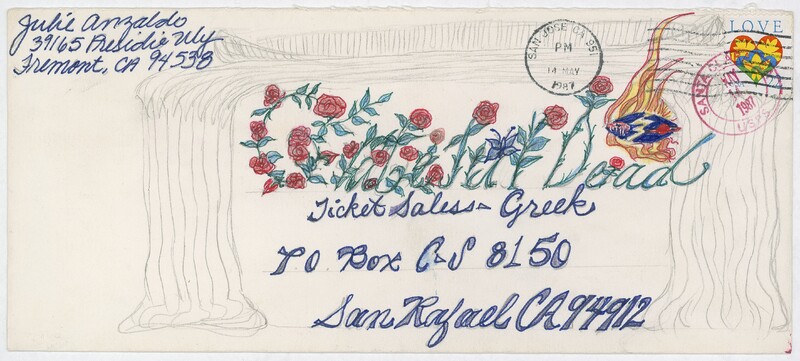 Julie Anzaldo
39165 Presidio Way
Fremont, CA 94538
SAN JOSE CA 95
PM
14 MAY
1987
LOVE
SANTA CLARA
MAY
1987
USPS
Grateful Dead
Ticket Sales - Greek
P.O. Box C-S 8150
San Rafael CA 94912